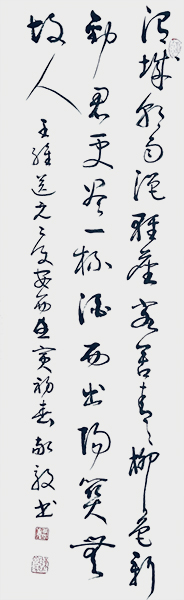 渭城朝雨浥轻尘客舍青々柳色新
劝君更尽一杯酒西出阳关无
故人
王维送元二使安西 寅初春 敬书